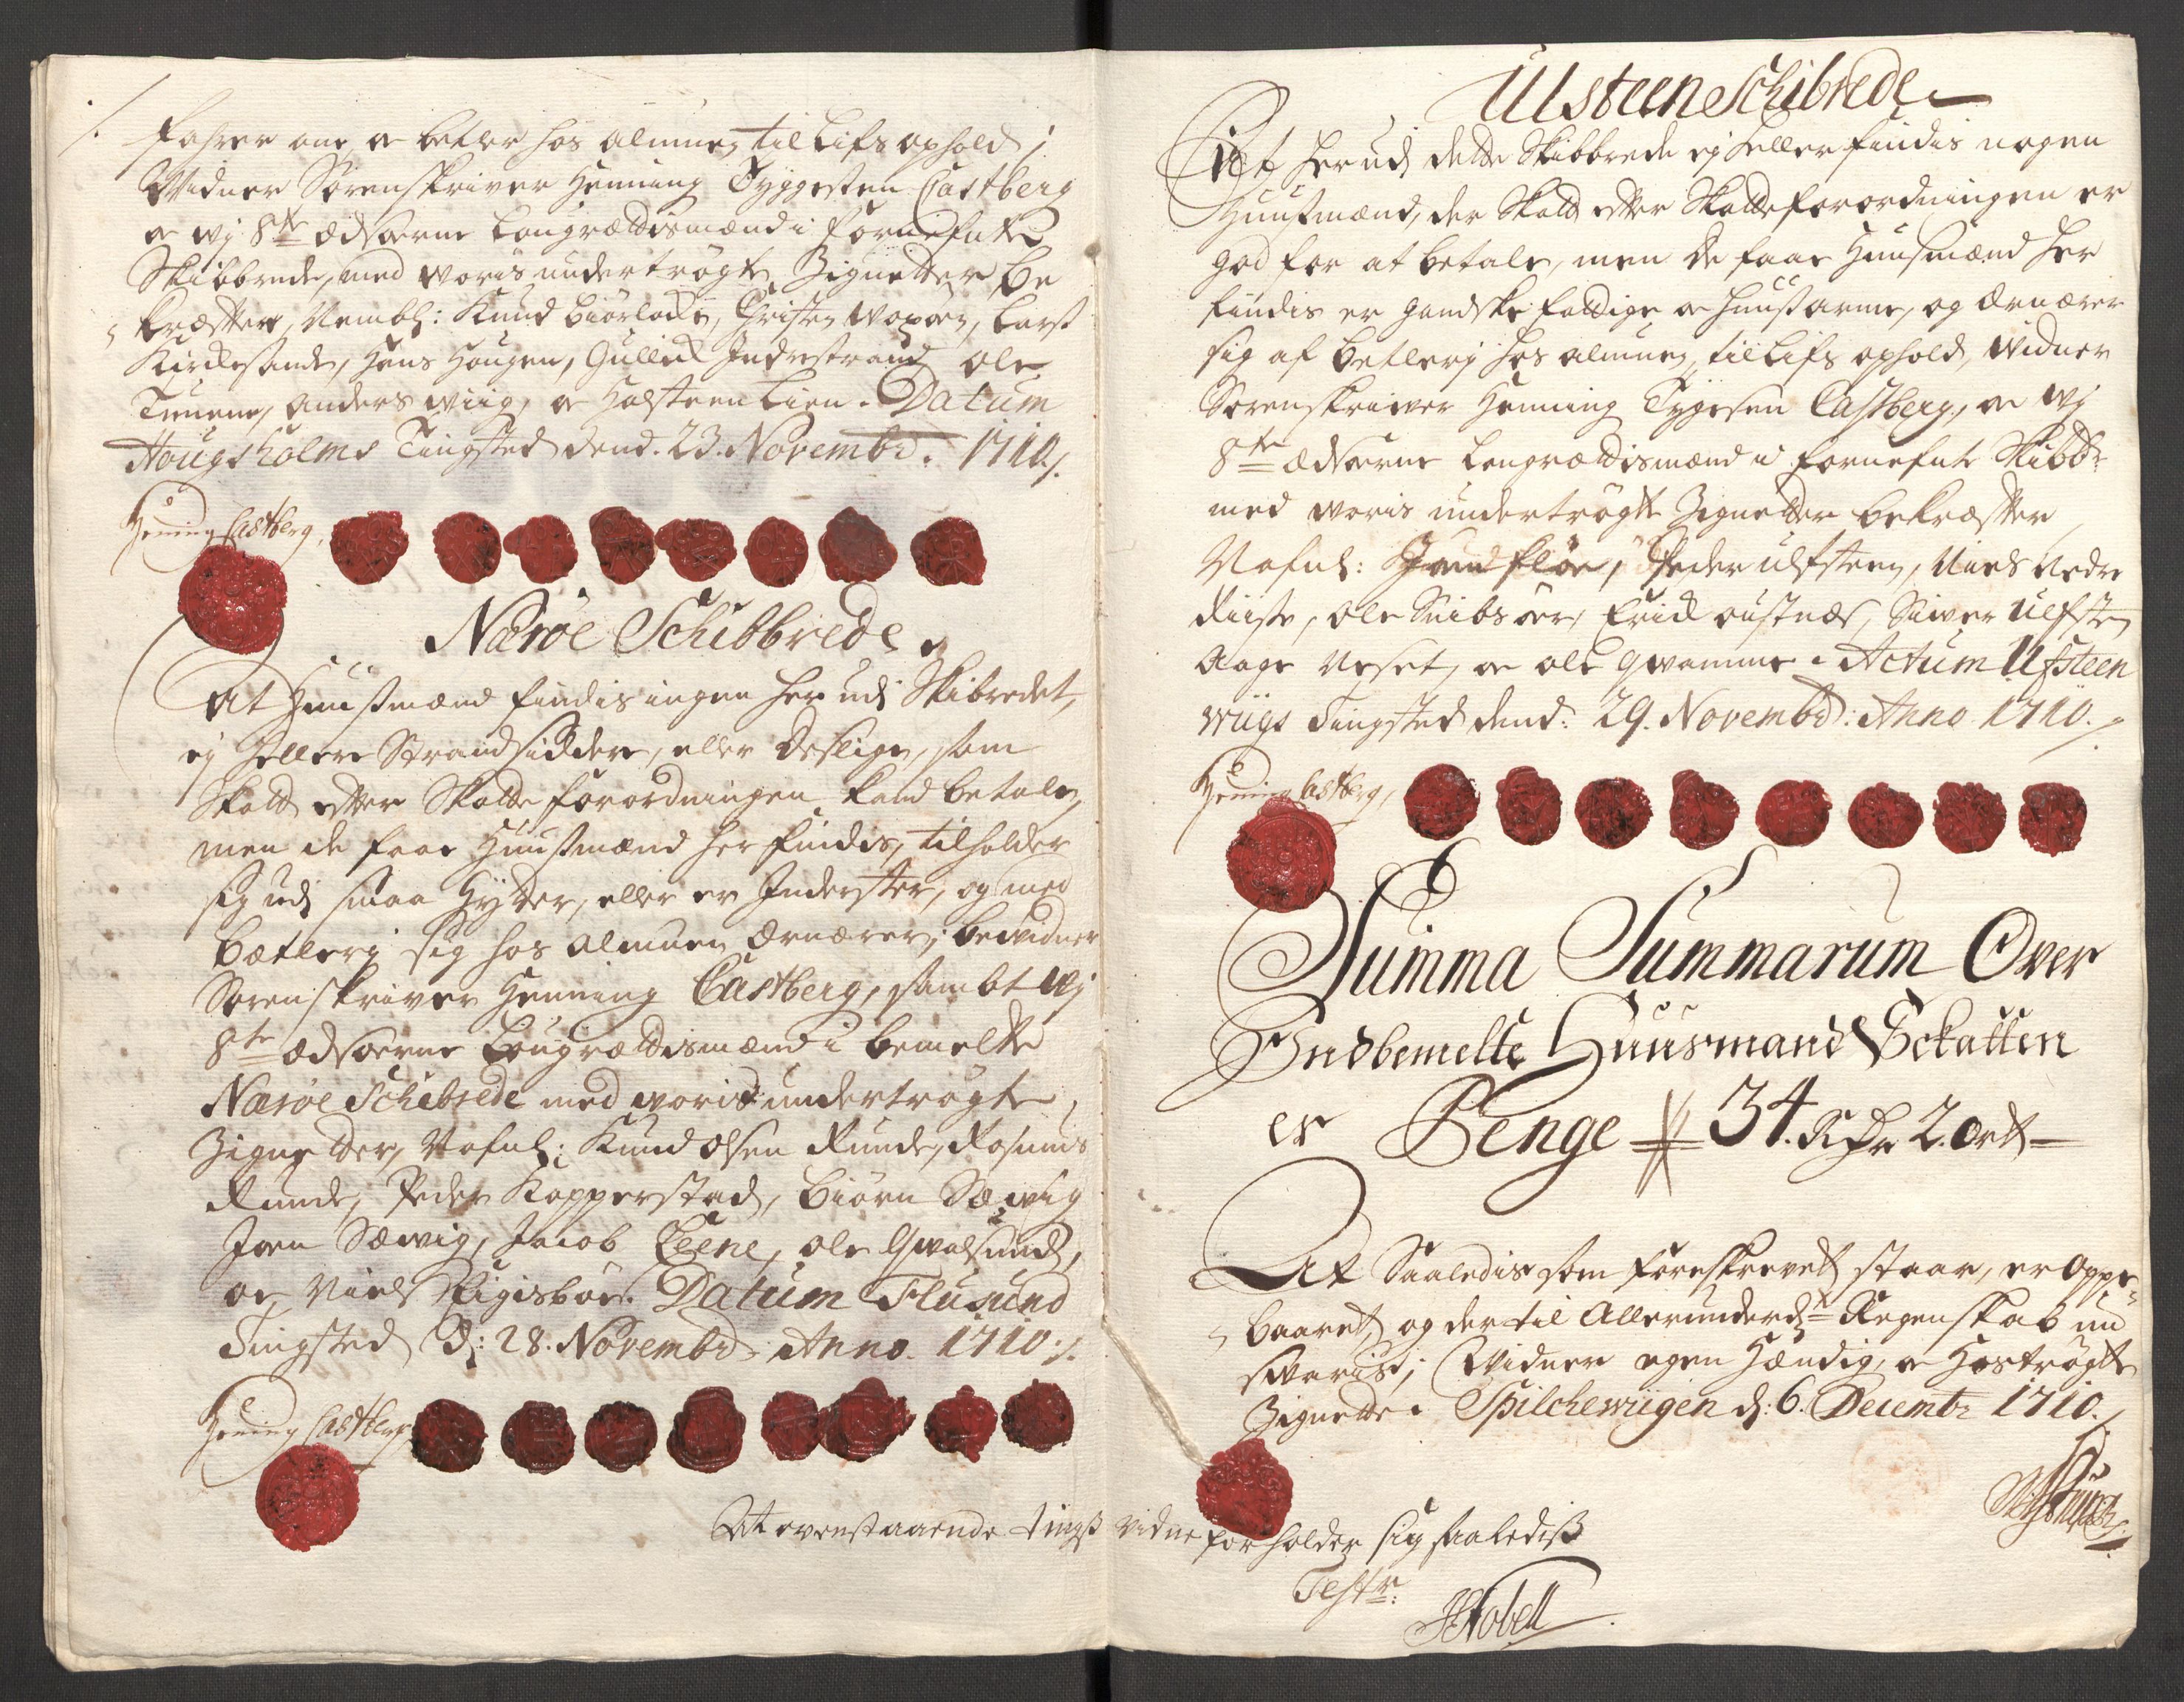 fahrer om, oc betler hos almuen til Lifs ophold;
Widner Sorenskriver Henning Tyggesen Castberg
oc wj 8te Edsorne Laugrættismænd i fornefnte
Skibbrede, med woris undertrøgte Zignetter be
kræffter, Nembl: Knud Biørlode, Christen Woxøen, Lars
Kirckesande, Hans Hougen, Gullick Indrestrand Ole
Tuenne, Anders wiig, oc Holsteen Lien. Datum
Hougsholms Tingsted dend. 23. Novembr. 1710./.
Henning Castberg,
Nærøe Schibbrede.
At Huusmænd findis ingen her udj Skibredet,
ej heller Strandsiddere, eller deslige, som
Skatt efter Skatte forordningen kand betale,
men de faae Huusmænd her findis, tilholder
sig udj smaa Hytter, eller er Inderster, og med
Betlerj sig hos Almuen Ernærer; bewidner
Sorenskriver Henning Castberg, sambt wj
8te Edsorne Laugrættismænd i bemelte
Nærøe Schibrede med woris undertrøgte
Zignetter, Nafnl: Knud Olsen Runde, Rasmus
Runde, Peder Kopperstad, Biørn Sæwig
Jon Sæwig, Jacob Teene, Ole Qwalsund,
oc Niels Rigisbøe. Datum Flusund
Tingsted D: 28. Novembr. Anno. 1710./.
Henning Castberg
At ovenstaaende tingsvidne forholder sig saaledis
Test:
Ulsteen Schibrede
At her udj dette Skibbrede ej heller findis nogen
Huusmænd, der Skatt effter Skatteforordningen er
god for at betale, men de faae Huusmænd her
findis er gandske fattige oc huusarme, og Ernærer
sig af betlerj hos almuen til Lifs ophold, Widner
Sorenskriwer Henning Tygesen Castberg, oc wj
8te Edsorne Laugrættismænd i fornefnte Skibbr:
med woris undertrøgte Zignetter bekræffter
Nafnl: Jon Fløe, Peder Ulfsteen, Niels Nedre
Riise, Ole Snibsøer, Erick oustnæs, Siver Ulfsten
Aage Neset, oc Ole Qwamme. Actum Ulfsteen
wiigs Tingsted dend: 29. Novembr: Anno 1710./.
Henning Castberg,
Summa Summarum Over
Indbemelte Huusmand Schatten
er Penge 34. Rdr 2. ort
At Saaledis som foreskrevet staar, er Oppe
baaret, og der til Allerunderd:te Regenskab nu
swaris; Widner egen Hændig, oc Hostrøgte
Zignette. Spilchewiigen d: 6. Decembr 1710.